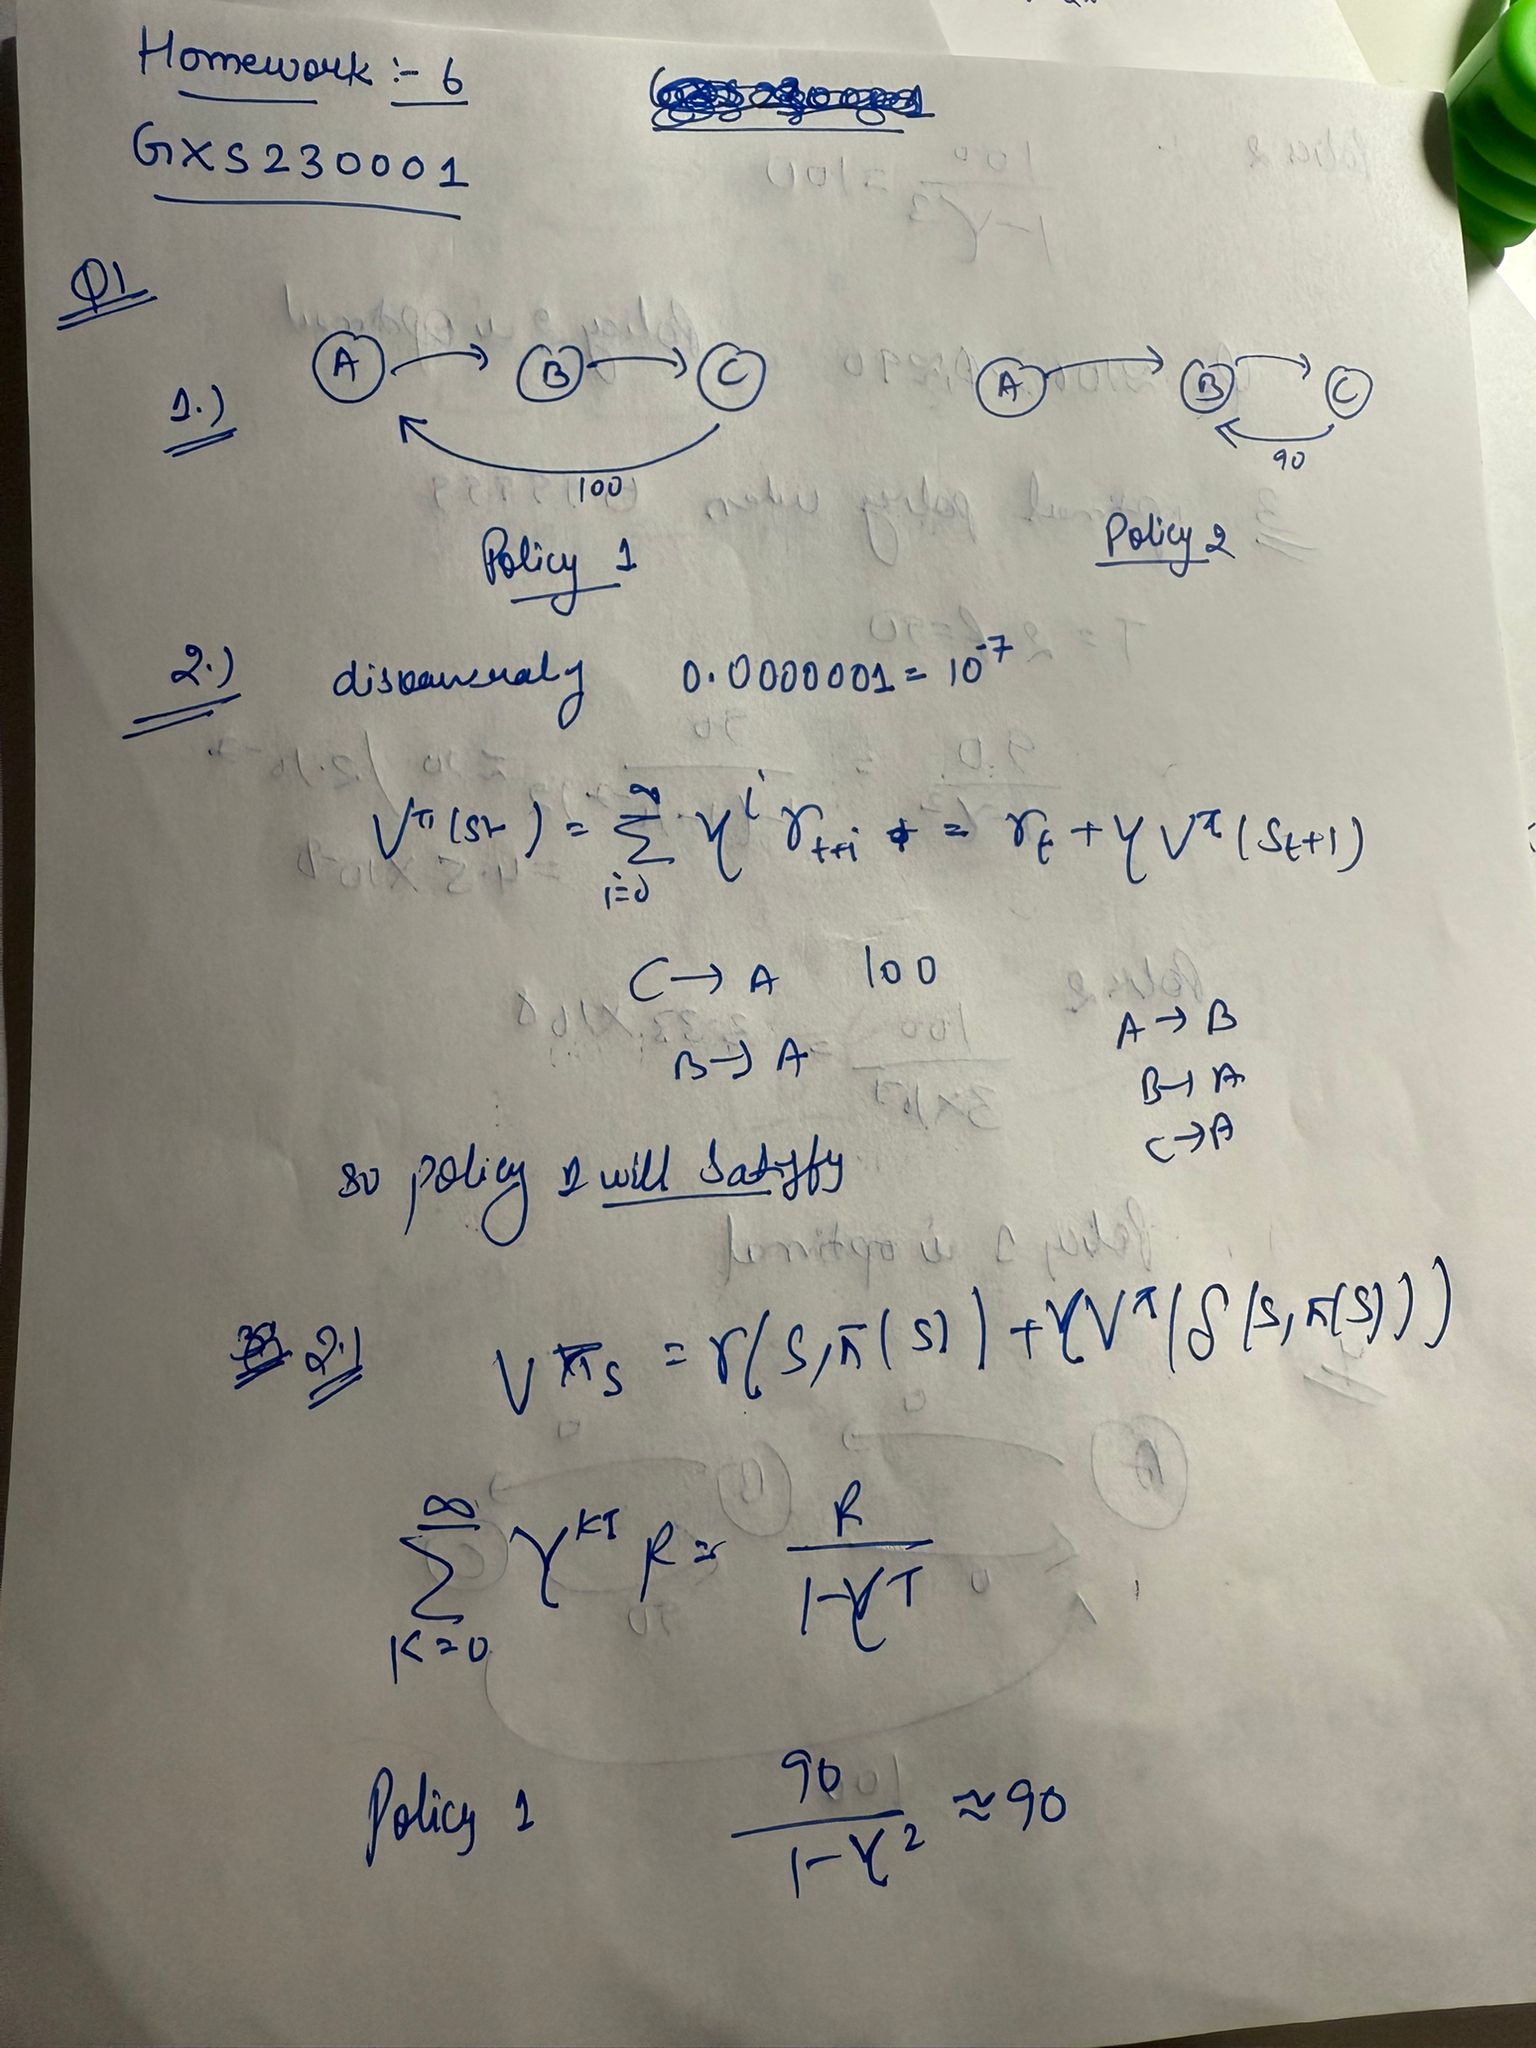 Homework :- 6
GXS230001
Q1
1.)
A B C
100
Policy 1
A B C
90
Policy 2
2.) 0.0000001 = 10^-7
V^π(st) = Σ_{i=0}^{∞} γ^i r_{t+i} = r_t + γ V^π(S_{t+1})
C → A 100
B → A
A → B
B → A
C → A
so policy 1 will satisfy
2.) V π s = r(S, π(S)) + γ V^π(δ(S, π(S)))
Σ_{K=0}^{∞} γ^{KT} R = R / 1-γ^T
Policy 1 90 / 1-γ^2 ≈ 90